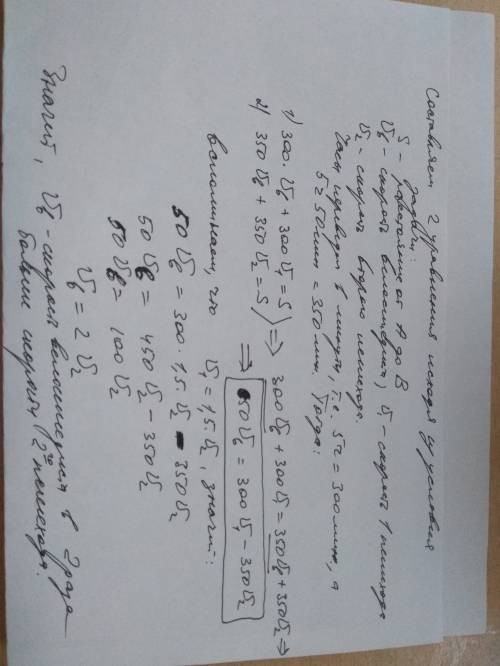 Составляем 2 уравнения исходя из условия
задачи:
S - расстояние от А до В
V_б - скорость велосипедиста, V₁ - скорость 1 пешехода
V₂ - скорость второго пешехода.
Часы переводим в минуты, т.е. 5ч = 300 мин, а
5ч 50 мин = 350 мин. Тогда:
1) 300·V_б + 300V₁ = S
2) 350V_б + 350V₂ = S } ⇒ 300V_б + 300V₁ = 350V_б + 350V₂ ⇒
⇒ 50V_б = 300V₁ - 350V₂
вспоминаем, что V₁ = 1,5·V₂, значит:
50V_б = 300·1,5·V₂ - 350V₂
50V_б = 450V₂ - 350V₂
50V_б = 100V₂
V_б = 2V₂
Значит, V_б - скорость велосипедиста в 2 раза
больше скорости 2го пешехода.